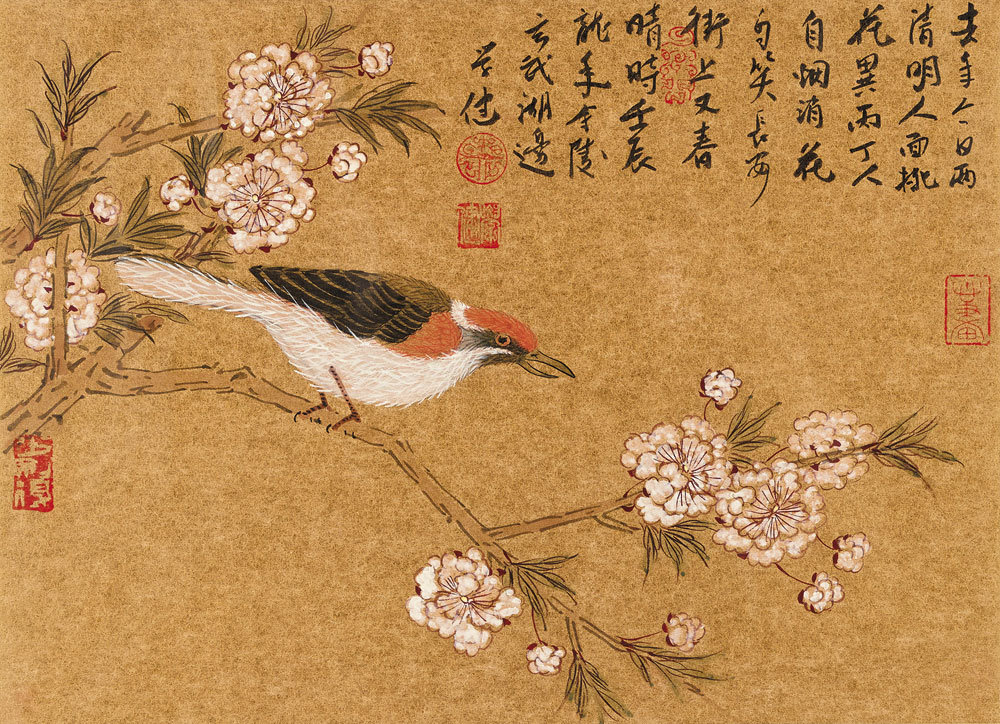 去年今日雨
清明人面桃
花異兩丁人
自烟消花
自笑長安
街上又春
晴時壬辰
龍年金陵
玄武湖邊